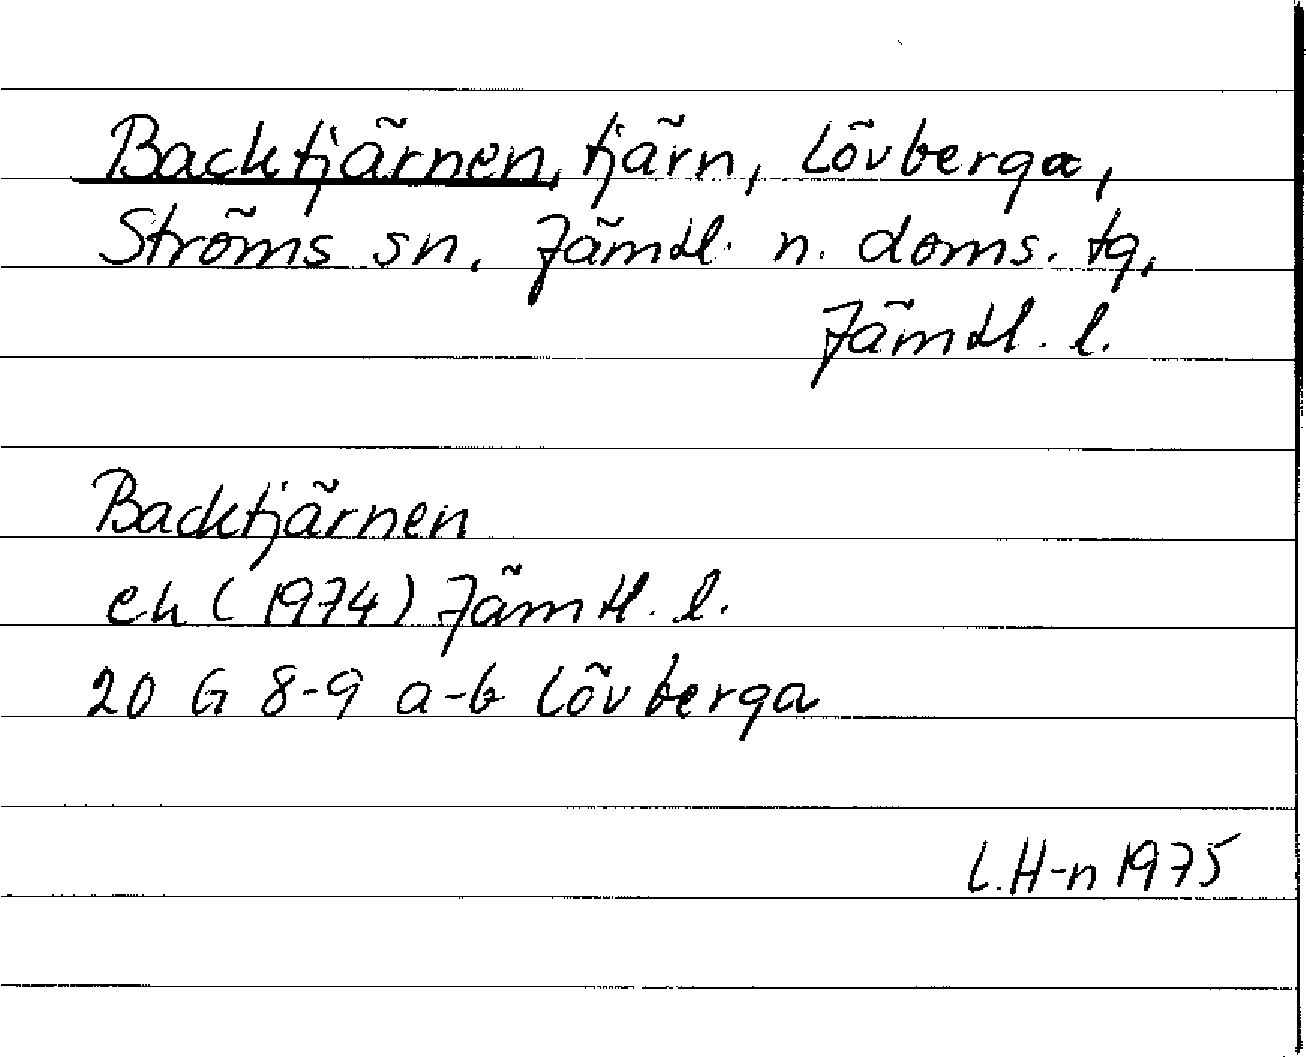 Backtjärnen, tjärn, Lövberga,
Ströms sn. Jämtl. n. doms. tg,
Jämtl. l.
Backtjärnen
ek (1974) Jämtl. l.
20 G 8-9 a-b Lövberga
L.H-n 1975